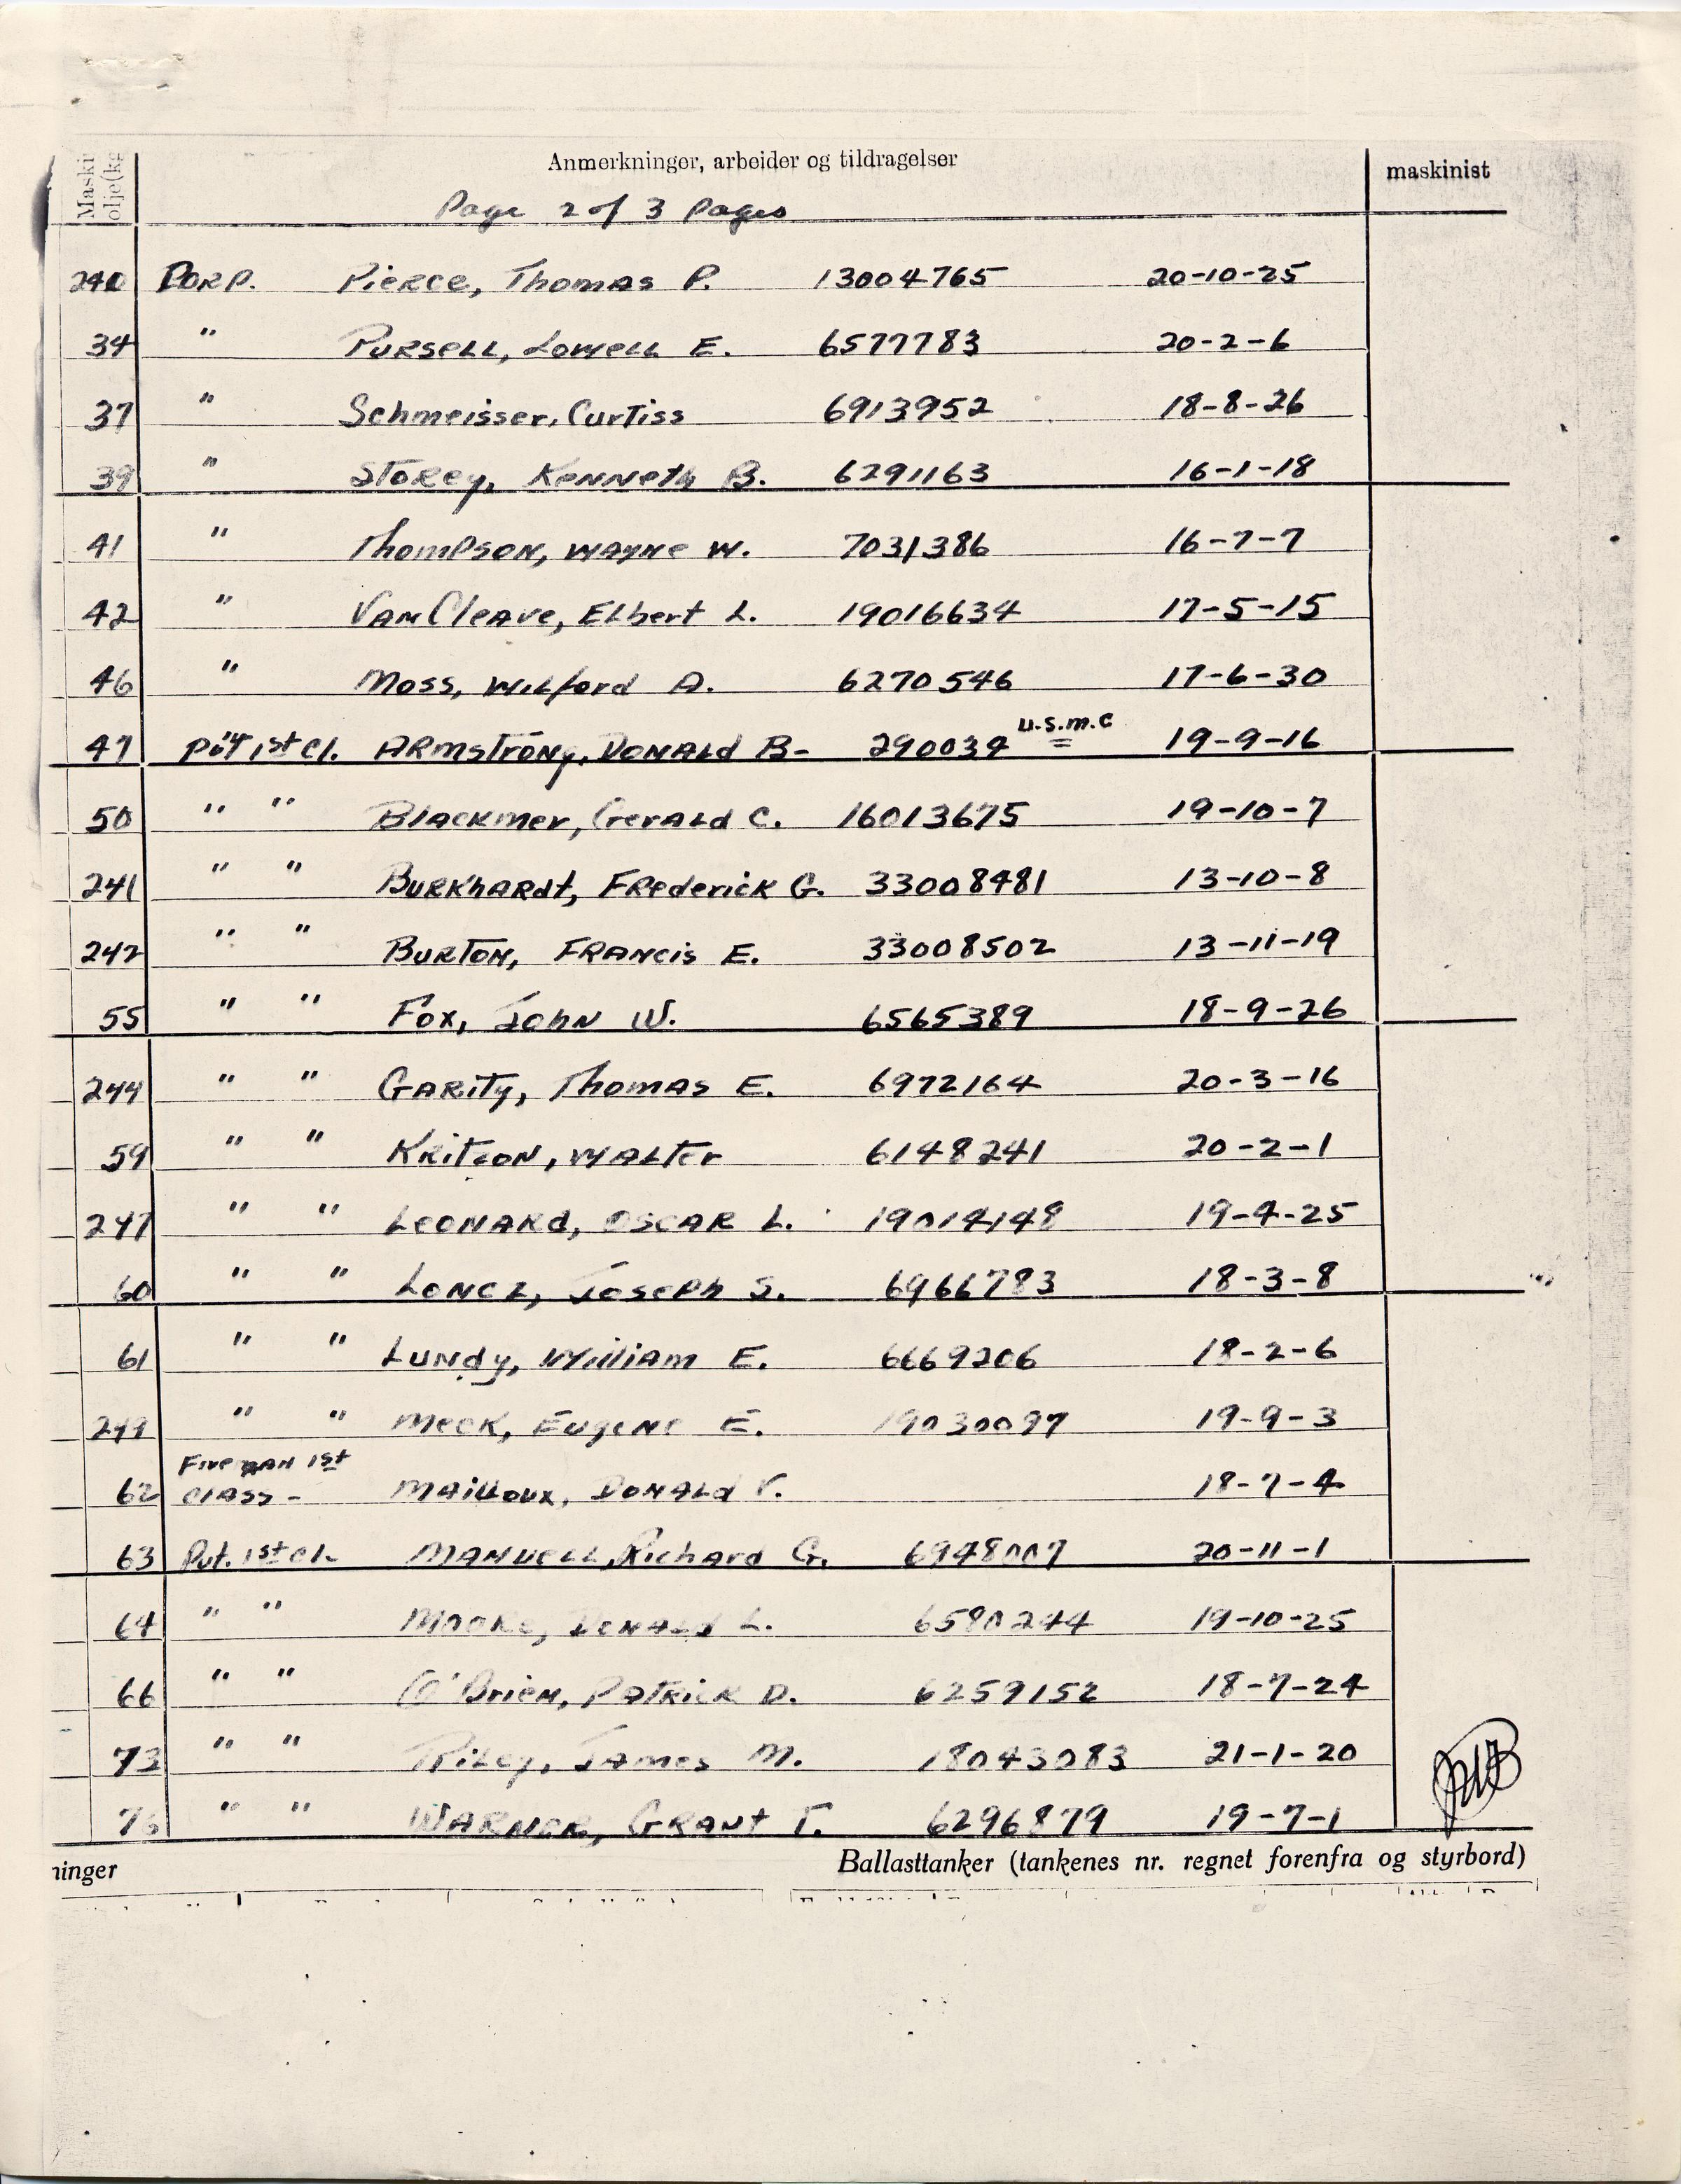 Maski
olje(kg
Anmerkninger, arbeider og tildragelser
maskinist
Page 2 of 3 Pages
240 CORP. Pierce, Thomas P. 13004765 20-10-25
34 " Pursell, Lowell E. 6577783 20-2-6
37 " Schmeisser, Curtiss 6913952 18-8-26
39 " Storey, Kenneth B. 6291163 16-1-18
41 " Thompson, Wayne W. 7031386 16-7-7
42 " Van Cleave, Elbert L. 19016634 17-5-15
46 " Moss, Wilford A. 6270546 17-6-30
47 Pvt 1st Cl. Armstrong, Donald B- 290034 U.S.M.C 19-9-16
50 " " Blackmer, Gerald C. 16013675 19-10-7
241 " " Burkhardt, Frederick G. 33008481 13-10-8
242 " " Burton, Francis E. 33008502 13-11-19
55 " " Fox, John W. 6565389 18-9-26
244 " " Garity, Thomas E. 6972164 20-3-16
59 " " Kritzon, Walter 6148241 20-2-1
247 " " Leonard, Oscar L. 19014148 19-4-25
60 " " Loncz, Joseph S. 6966783 18-3-8
61 " " Lundy, William E. 6669206 18-2-6
249 " " Meek, Eugene E. 19030097 19-9-3
Fireman 1st
62 Class- Mailloux, Donald V. 18-7-4
63 Pvt. 1st Cl. Manuell, Richard G. 6948007 20-11-1
64 " " Moore, Donald L. 6580244 19-10-25
66 " " O'Brien, Patrick D. 6259152 18-7-24
73 " " Riley, James M. 18043083 21-1-20
" " Warner, Grant T. 6296879 19-7-1
ninger
Ballasttanker (tankenes nr. regnet forenfra og styrbord)